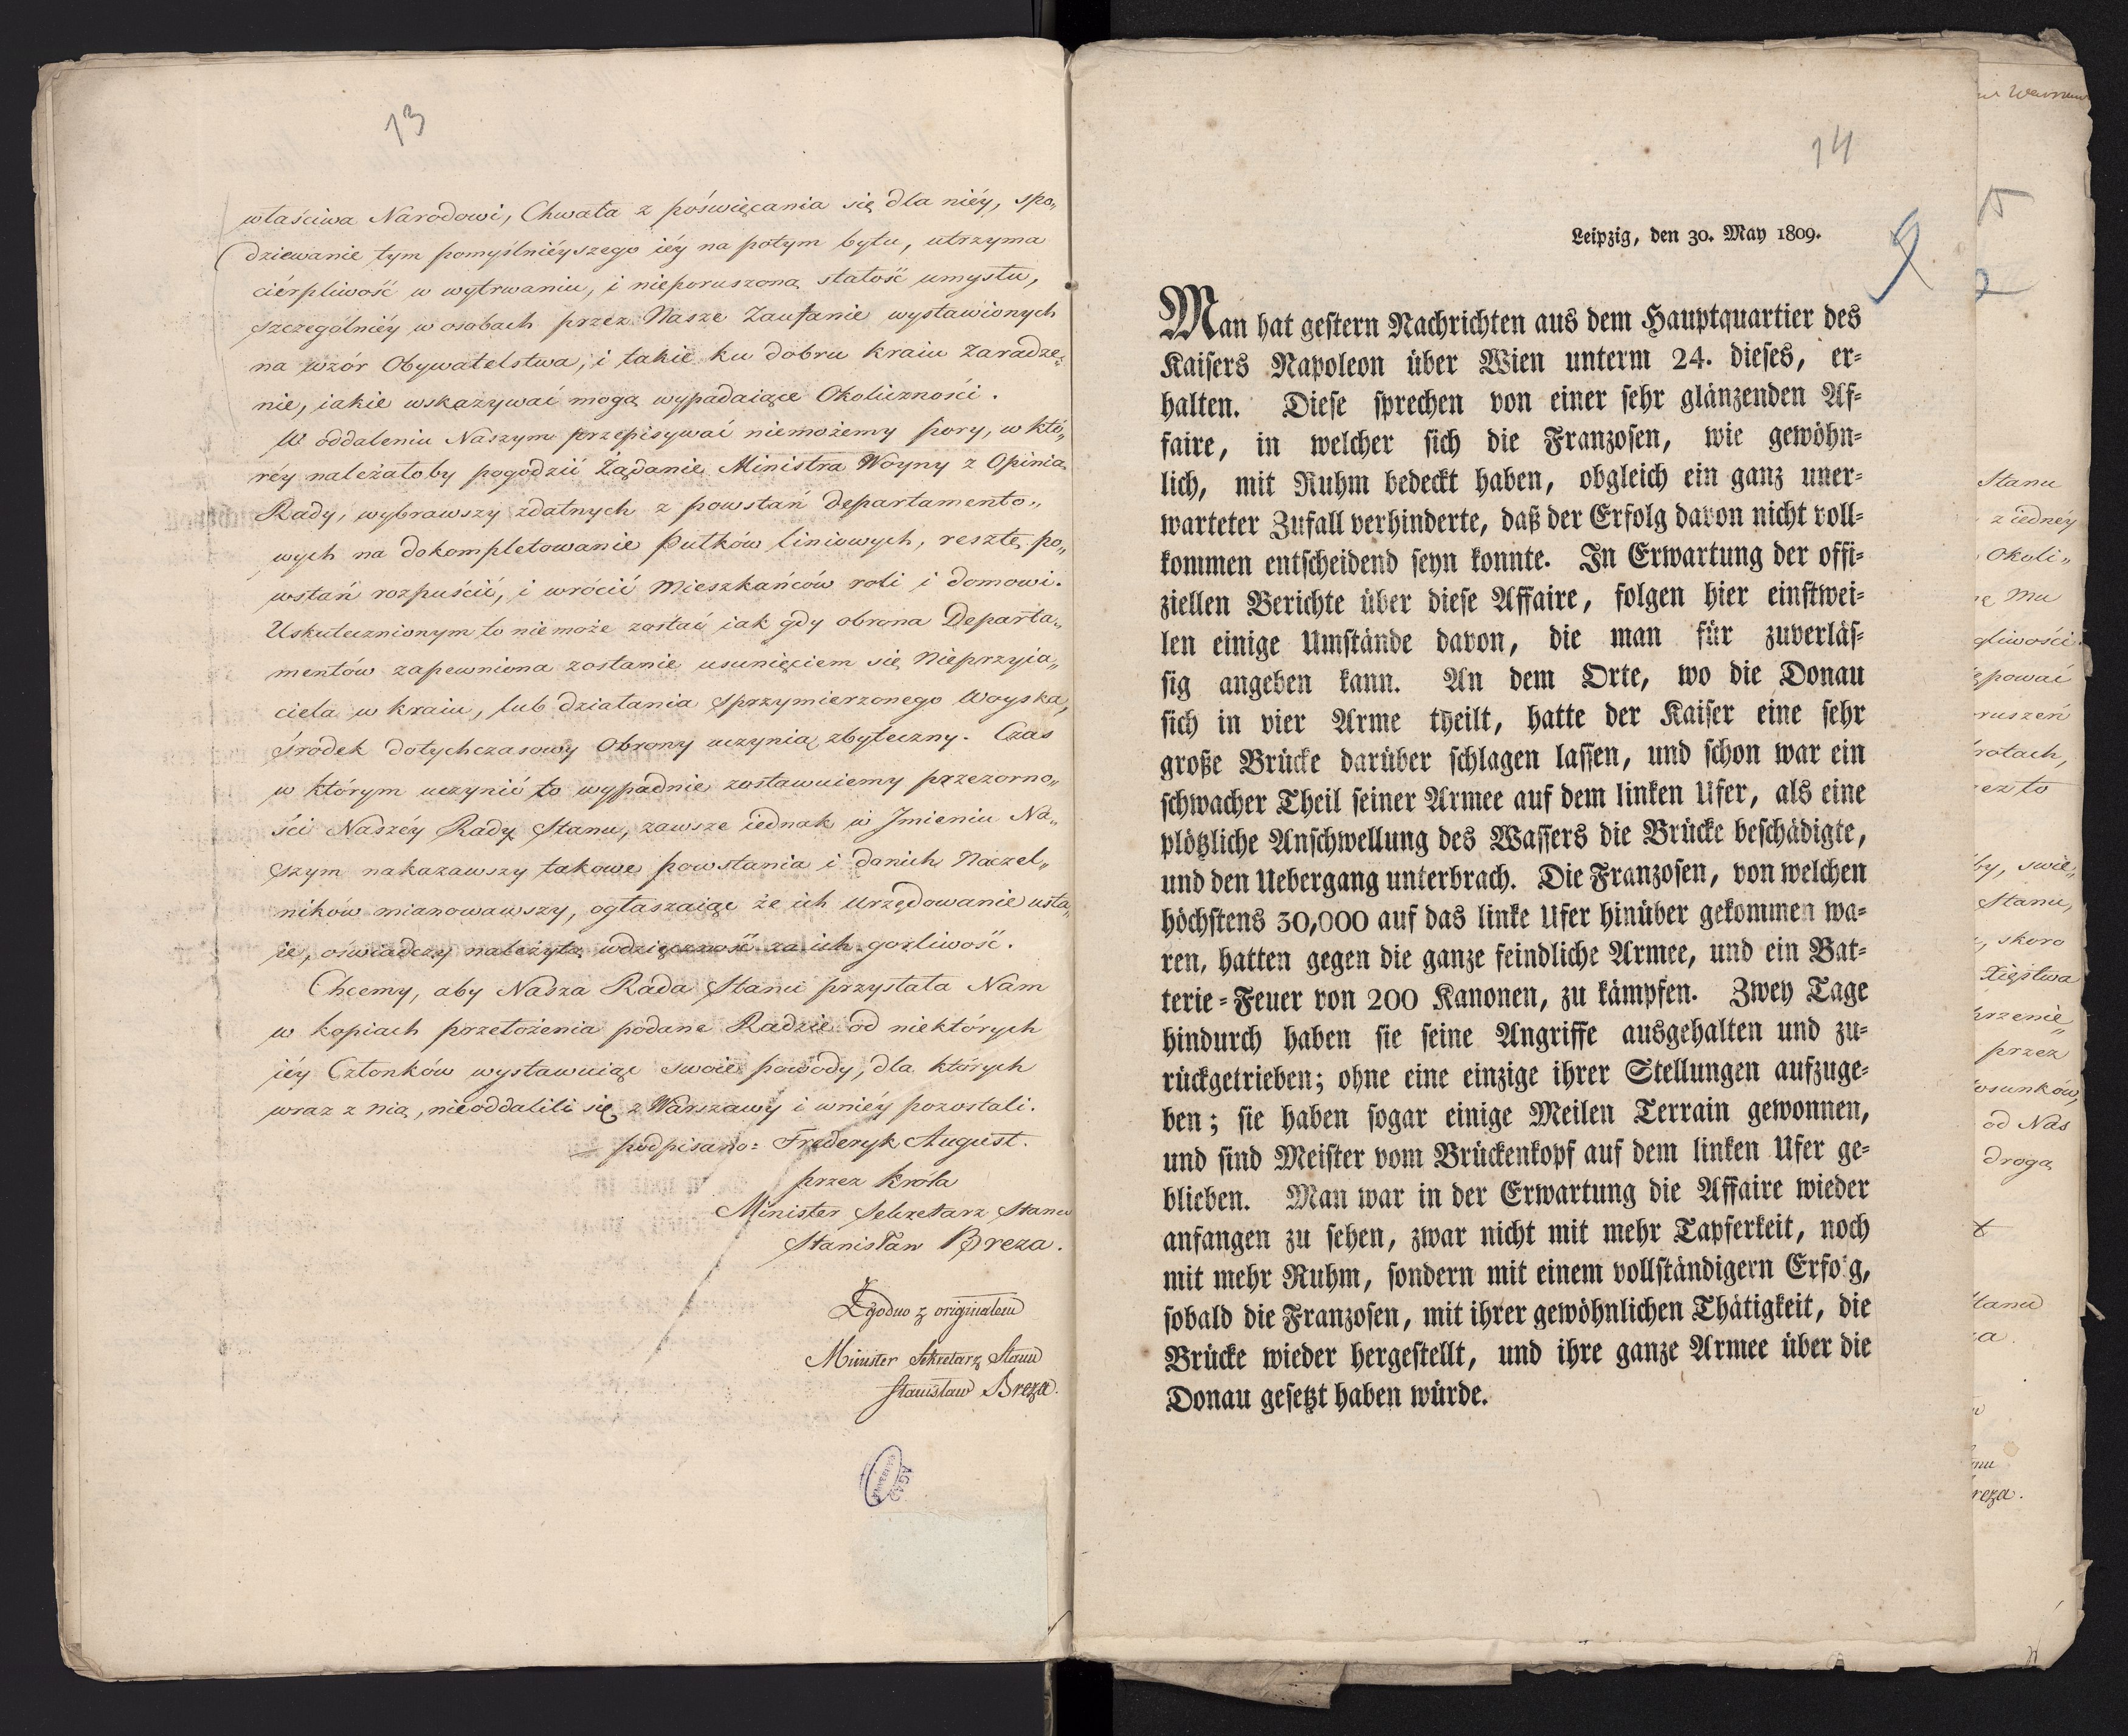 13
właściwa Narodowi, Chwała z poświęcania się dla niéy, spo„
dziewanie tym pomyślniéyszego iéy na potym bytu, utrzyma
cierpliwość w wytrwaniu, i nieporuszoną stałość umysłu,
szczególniéy w osobach przez Nasze Zaufanie wystawionych
na wzór Obywatelstwa, i takie ku dobru kraiu zaradze„
nie, iakie wskazywać mogą wypadaiące Okoliczności.
W oddaleniu Naszym przepisywać niemożemy pory, w któ„
réy należałoby pogodzić Żądanie Ministra Woyny z Opinią
Rady, wybrawszy zdatnych z powstań departamento„
wych na dokompletowanie Pułków liniowych, resztę po„
wstań rozpuścić, i wrócić Mieszkańców roli i domowi.
Uskutecznionym to niemoże zostać iak gdy obrona Departa„
mentów zapewniona zostanie usunięciem się Nieprzyia„
ciela w kraiu, lub działania sprzymierzonego Woyska,
środek dotychczasowy Obrony uczynią zbyteczny. Czas
w którym uczynić to wypadnie zostawuiemy przezorno„
ści Naszéy Rady Stanu, zawsze iednak w Imieniu Na„
szym nakazawszy takowe powstania i do nich Naczel„
ników mianowawszy, ogłaszaiąc że ich Urzędowanie usta„
ie, oświadczy należytą wdzięczność za ich gorliwość.
Chcemy, aby Nasza Rada Stanu przysłała Nam
w kopiach przełożenia podane Radzie od niektórych
iéy Członków wystawuiąc swoie powody, dla których
wraz z nią, nieoddalili się z Warszawy i w niéy pozostali.
podpisano: Frederyk August.
przez Króla
Minister Sekretarz Stanu
Stanisław Breza.
Zgodno z originałem
Minister Sekretarz Stanu
Stanisław Breza.
AGAD
14
9
Leipzig, den 30. May 1809.
Man hat gestern Nachrichten aus dem Hauptquartier des
Kaisers Napoleon über Wien unterm 24. dieses, er-
halten. Diese sprechen von einer sehr glänzenden Af-
faire, in welcher sich die Franzosen, wie gewöhn-
lich, mit Ruhm bedeckt haben, obgleich ein ganz uner-
warteter Zufall verhinderte, daß der Erfolg davon nicht voll-
kommen entscheidend seyn konnte. In Erwartung der offi-
ziellen Berichte über diese Affaire, folgen hier einstwei-
len einige Umstände davon, die man für zuverläs-
sig angeben kann. An dem Orte, wo die Donau
sich in vier Arme theilt, hatte der Kaiser eine sehr
große Brücke darüber schlagen lassen, und schon war ein
schwacher Theil seiner Armee auf dem linken Ufer, als eine
plötzliche Anschwellung des Wassers die Brücke beschädigte,
und den Uebergang unterbrach. Die Franzosen, von welchen
höchstens 30,000 auf das linke Ufer hinüber gekommen wa-
ren, hatten gegen die ganze feindliche Armee, und ein Bat-
terie-Feuer von 200 Kanonen, zu kämpfen. Zwey Tage
hindurch haben sie seine Angriffe ausgehalten und zu-
rückgetrieben; ohne eine einzige ihrer Stellungen aufzuge-
ben; sie haben sogar einige Meilen Terrain gewonnen,
und sind Meister vom Brückenkopf auf dem linken Ufer ge-
blieben. Man war in der Erwartung die Affaire wieder
anfangen zu sehen, zwar nicht mit mehr Tapferkeit, noch
mit mehr Ruhm, sondern mit einem vollständigern Erfolg,
sobald die Franzosen, mit ihrer gewöhnlichen Thätigkeit, die
Brücke wieder hergestellt, und ihre ganze Armee über die
Donau gesetzt haben würde.
15
2
Stanu
z iednéy
Okoli„
Mu
gliwości
powai
ruszeń
ez to
by, swie„
Stanu,
, skoro
Xięstwa
przez
osunków,
od Nas
drogą